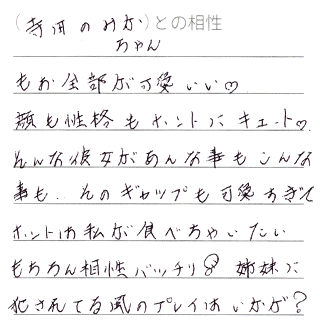 (寺田のみか)との相性
ちゃん
もお全部が可愛いい♡
顔も性格もホントにキュート♡
そんな彼女があんな事もこんな
事も…そのギャップも可愛すぎて
ホントは私が食べちゃいたい
もちろん相性バッチリ 姉妹に
犯されてる風のプレイはいかが?